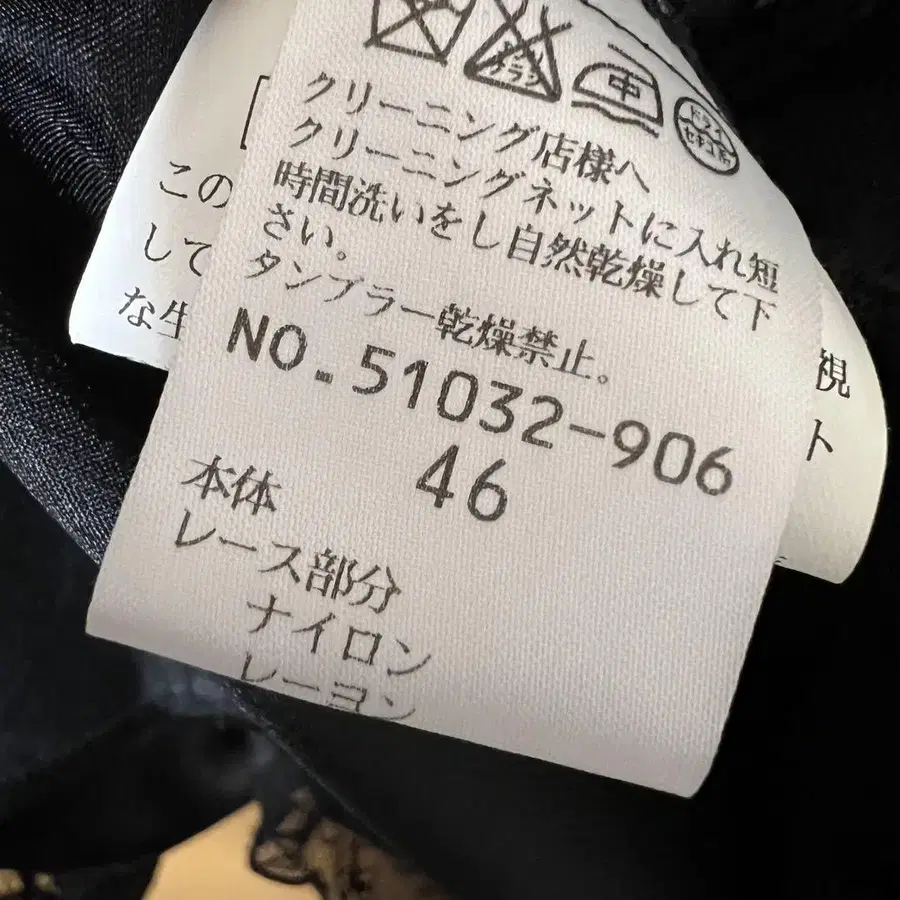 中
ドライ
セキユ系
クリーニング店様へ
クリーニングネットに入れ短
時間洗いをし自然乾燥して下
さい。
タンブラー乾燥禁止。
NO.51032-906
46
本体
レース部分
ナイロン
レーヨン
この
して
な生
視
ト